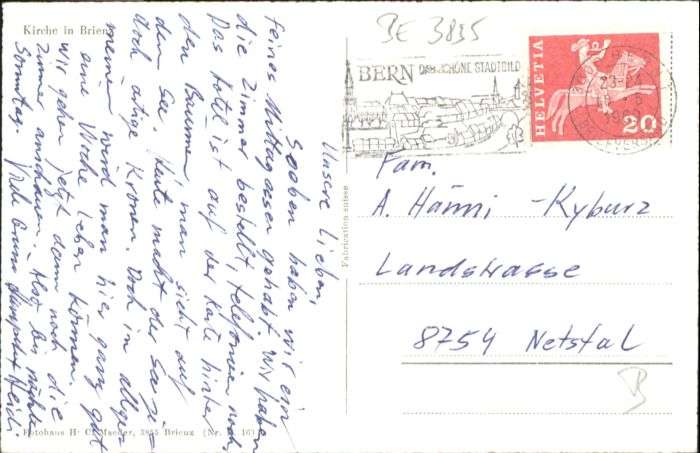 Kirche in Brienz
BE 3835
BERN DAS SCHÖNE STADTBILD
HELVETIA
20
Unsere Lieben,
Soeben haben wir ein
feines Mittagessen gehabt. Wir haben
die Zimmer bestellt, telefonieren noch.
Das Hotel ist auf der Karte hinter
den Bäumen man sieht auf
den See. Heute macht der See zie
doch artige Kronen. Doch in allge
meinen wird man hier ganz gut
eine Woche leben können.
Wir gehen jetzt dann noch die
Zimmer anschauen. Also bis nächsten
Sonntag. Viele Grüsse Heidi
Fabrication suisse
Fam.
A. Hänni - Kyburz
Landstrasse
8754 Netstal
B
Fotohaus H. C. Maeder, 3855 Brienz (Nr. 16)